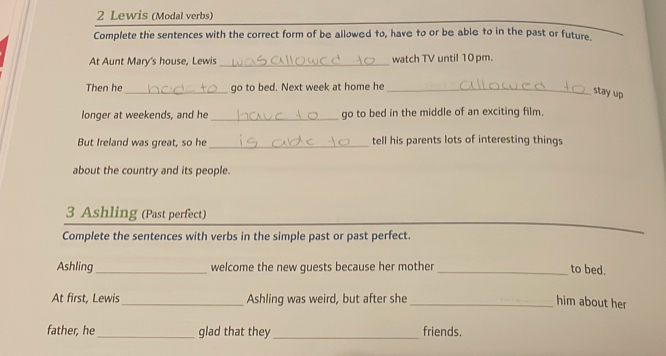 2 Lewis (Modal verbs)
Complete the sentences with the correct form of be allowed to, have to or be able to in the past or future.
At Aunt Mary's house, Lewis was allowed to watch TV until 10 pm.
Then he had to go to bed. Next week at home he allowed to stay up
longer at weekends, and he have to go to bed in the middle of an exciting film.
But Ireland was great, so he is able to tell his parents lots of interesting things
about the country and its people.
3 Ashling (Past perfect)
Complete the sentences with verbs in the simple past or past perfect.
Ashling ____ welcome the new guests because her mother ____ to bed.
At first, Lewis ____ Ashling was weird, but after she ____ him about her
father, he ____ glad that they ____ friends.